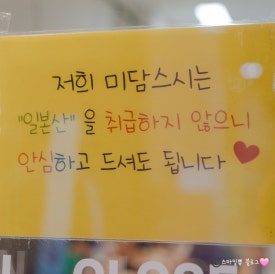 저희 미담스시는
"일본산"을 취급하지 않으니
안심하고 드셔도 됩니다 ♥
스마일뿅 블로그